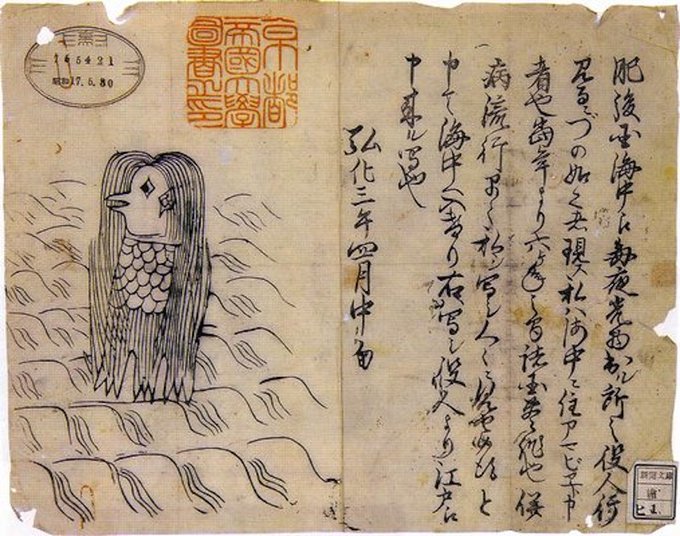 肥後国海中え毎夜光物出ル所之役人行
見るニづの如之者現ス私ハ海中ニ住アマビヱト申
者也当年より六ヶ年之間諸国豊作也併
病流行早々私シ写シ人々ニ見せ候得と
申て海中へ入けり右写シ役人より江戸え
申来ル写也
弘化三年四月中旬
京都
帝國大學
圖書之印
165421
昭和17.5.30
新聞文庫